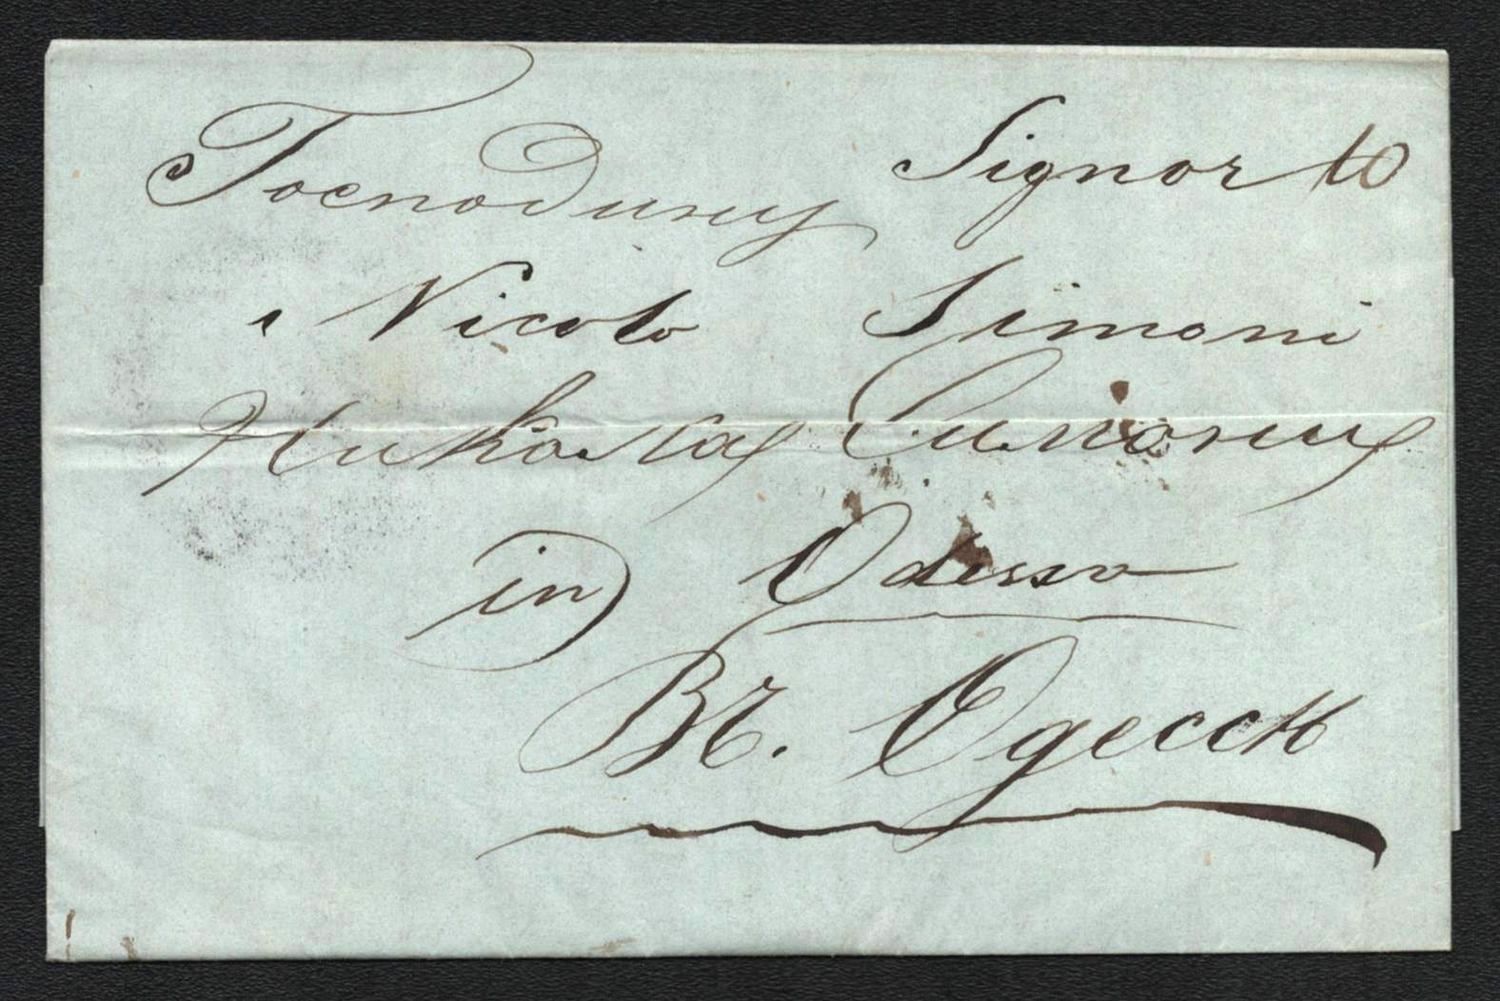 Господину Signor 10
Nicolo Simoni
Николаю Симонию
in Odessa
Въ. Одессѣ